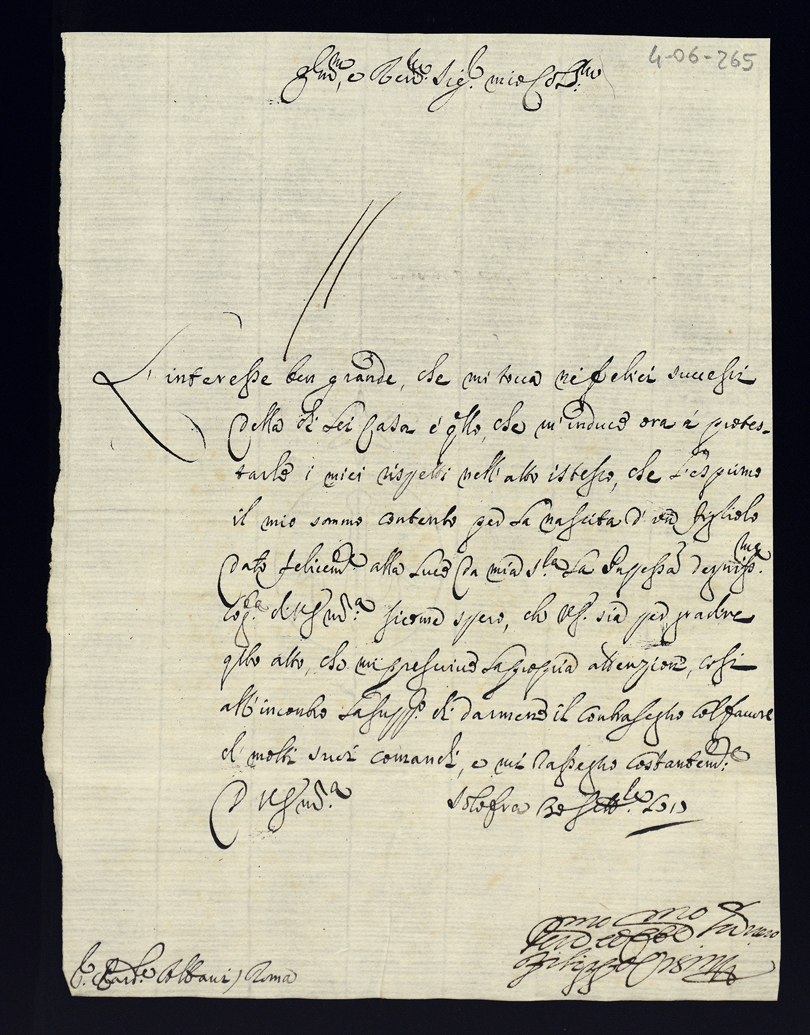 4-06-265
e Rev.mo Sig.r mio Col.mo
L'interesse ben grande, che mi tocca ne felici successi
della di Lei Casa é q̃llo, che m'induce ora á protes-
tarle i miei rispetti nell'atto istesso, che L'esprimo
il mio sommo contento per La nascita d'un figliolo
dato felicem.te alla Luce da mia S.ra La Pnpessa degniss.ma
di V.S. Ill.ma sicome spero, che V.S. sia per gradire
q̃sto atto, che mi prescrive La propria attenzione, cosi
all'incontro La supp.co di darmene il contrasegno col favore
di molti suoi comandi, e mi rassegno costantem.te
D V.S. Ill.ma Solofra 30 Sett.re
Filippo Orsini
Card.le Albani, Roma